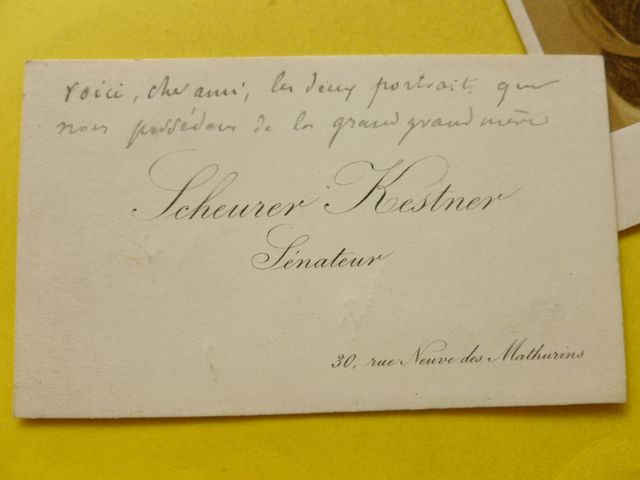 Voici, cher ami, les deux portraits que
nous possédons de la grand grand mère
Scheurer Kestner
Sénateur
30, rue Neuve des Mathurins